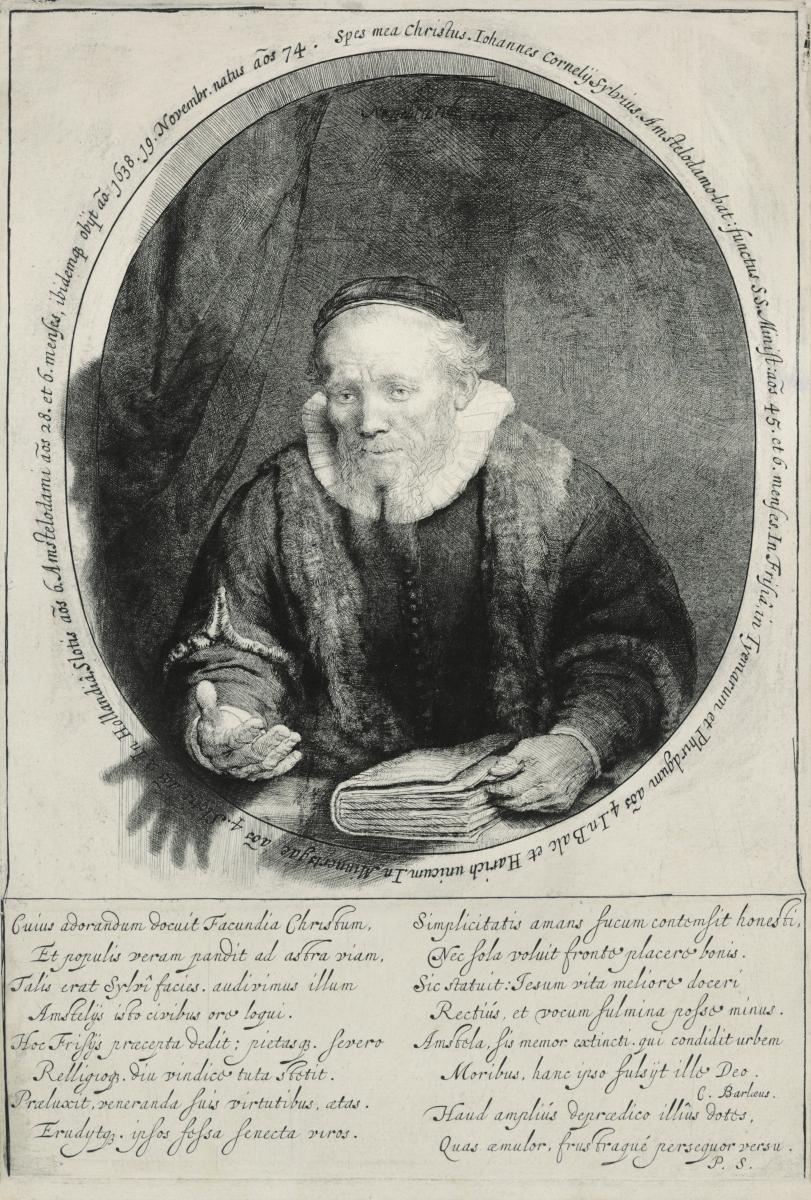 Spes mea Christus. Iohannes Cornelij Sylvius, Amstelodamo-bat: functus S.S. Minist: aōs 45. et 6. menses. In Frisiâ in Tyemarum et Phirdgum aōs 4. In Balc et Harich unicum. In Minnertsgae aōs 4. Slotis aōs 6. Amstelodami aōs 28. et 6. menses, ibidemqȝ obijt aō. 1638. 19. Novembr. natus aōs 74.
Rembrandt
Cuius adorandum docuit Facundia Christum,
Et populis veram pandit ad astra viam,
Talis erat Sylvî facies. audivimus illum
Amstelijs isto civibus ore loqui.
Hoc Frisijs præcepta dedit; pietasqȝ. severo
Relligioqȝ. diu vindice tuta stetit.
Præluxit, veneranda suis virtutibus, ætas.
Erudytqȝ. ipsos fessa senecta viros.
Simplicitatis amans fucum contemsit honesti,
Nec sola voluit fronte placere bonis.
Sic statuit: Iesum vita meliore doceri
Rectiús, et vocum fulmina posse minus.
Amstela, sis memor extincti. qui condidit urbem
Moribus, hanc ipso fulsijt ille Deo.
C. Barlæus.
Haud ampliús deprædico illiûs dotes,
Quas æmulor, frustraqué persequor versu.
P. S.